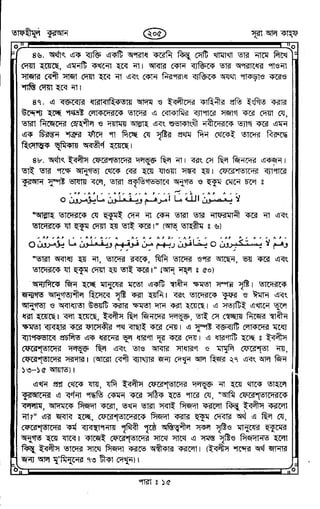 তাফহীমুল কুরআন
২০৫
সূরা আল কাহফ
৪৬. অর্থাৎ এক ব্যক্তি একটি অপরাধ করেনি কিন্তু সেটি খামাখা তার নামে লিখে
দেয়া হয়েছে, এমনটি কখনো হবে না। আবার কোন ব্যক্তিকে তার অপরাধের পাওনা
সাজার বেশী সাজা দেয়া হবে না এবং কোন নিরপরাধ ব্যক্তিকে অযথা পাকড়াও করেও
শাস্তি দেয়া হবে না।
৪৭. এ বক্তব্যের ধারাবাহিকতায় আদম ও ইবলীসের কাহিনীর প্রতি ইংগিত করার
উদ্দেশ্য হচ্ছে পথভ্রষ্ট লোকদেরকে তাদের এ বোকামির ব্যাপারে সজাগ করে দেয়া যে,
৪৮. অর্থাৎ ইবলীস ফেরেশতাদের দলভুক্ত ছিল না। বরং সে ছিল জিনদের একজন।
তাই তার পক্ষে আনুগত্য থেকে বের হয়ে যাওয়া সম্ভব হয়। ফেরেশতাদের ব্যাপারে
কুরআন সুস্পষ্ট ভাষায় বলে, তারা প্রকৃতিগতভাবে অনুগত ও হুকুম মেনে চলে ঃ
لَا يَعْصُونَ اللَّهَ مَا أَمَرَهُمْ وَيَفْعَلُونَ مَا يُؤْمَرُونَ ○
"আল্লাহ তাদেরকে যে হুকুমই দেন না কেন তারা তার নাফরমানী করে না এবং
তাদেরকে যা হুকুম দেয়া হয় তাই করে।" (আত্ তাহরীম ঃ ৬)
وَهُمْ لَا يَسْتَكْبِرُونَ ○ يَخَافُونَ رَبَّهُمْ مِنْ فَوْقِهِمْ وَيَفْعَلُونَ مَا يُؤْمَرُونَ ○
"তারা অবাধ্য হয় না, তাদের রবকে, যিনি তাদের ওপর আছেন, ভয় করে এবং
তাদেরকে যা হুকুম দেয়া হয় তাই করে।" (আন্ নহল ঃ ৫০)
অন্যদিকে জিন হচ্ছে মানুষের মতো একটি স্বাধীন ক্ষমতা সম্পন্ন সৃষ্টি। তাদেরকে
জন্মগত আনুগত্যশীল হিসেবে সৃষ্টি করা হয়নি। বরং তাদেরকে কুফর ও ঈমান এবং
আনুগত্য ও অবাধ্যতা উভয়টি করার ক্ষমতা দান করা হয়েছে। এ সত্যটিই এখানে তুলে
ধরা হয়েছে। বলা হয়েছে, ইবলীস ছিল জিনদের দলভুক্ত, তাই সে স্বেচ্ছায় নিজের স্বাধীন
ক্ষমতা ব্যবহার করে ফাসেকীর পথ বাছাই করে নেয়। এ সুস্পষ্ট বক্তব্যটি লোকদের মধ্যে
ব্যাপকভাবে প্রচলিত এক ধরনের ভুল ধারণা দূর করে দেয়। এ ধারণাটি হচ্ছে ঃ ইবলীস
ফেরেশতাদের দলভুক্ত ছিল এবং তাও আবার সাধারণ ও মামুলি ফেরেশতা নয়,
ফেরেশতাদের সরদার। (আরো বেশী ব্যাখ্যার জন্য দেখুন আল হিজর ২৭ এবং আল জিন
১৩-১৫ আয়াত)।
এখন প্রশ্ন থেকে যায়, যদি ইবলীস ফেরেশতাদের দলভুক্ত না হয়ে থাকে তাহলে
কুরআনের এ বর্ণনা পদ্ধতি কেমন করে সঠিক হতে পারে যে, "আমি ফেরেশতাদেরকে
বললাম, আদমকে সিজদা করো, তখন তারা সবাই সিজদা করলো কিন্তু ইবলীস করলো
না?" এর জবাব হচ্ছে, ফেরেশতাদেরকে সিজদা করার হুকুম দেবার অর্থ এ ছিল যে,
ফেরেশতাদের কর্ম ব্যবস্থাপনায় পৃথিবী পৃষ্ঠে অস্তিত্বশীল সকল সৃষ্টিও মানুষের হুকুমের
অনুগত হয়ে যাবে। কাজেই ফেরেশতাদের সাথে সাথে এ সমস্ত সৃষ্টিও সিজদানত হলো
কিন্তু ইবলীস তাদের সাথে সিজদা করতে অস্বীকার করলো। (ইবলীস শব্দের অর্থ জানার
জন্য আল মু'মিনুনের ৭৩ টীকা দেখুন)।
পারা ঃ ১৫